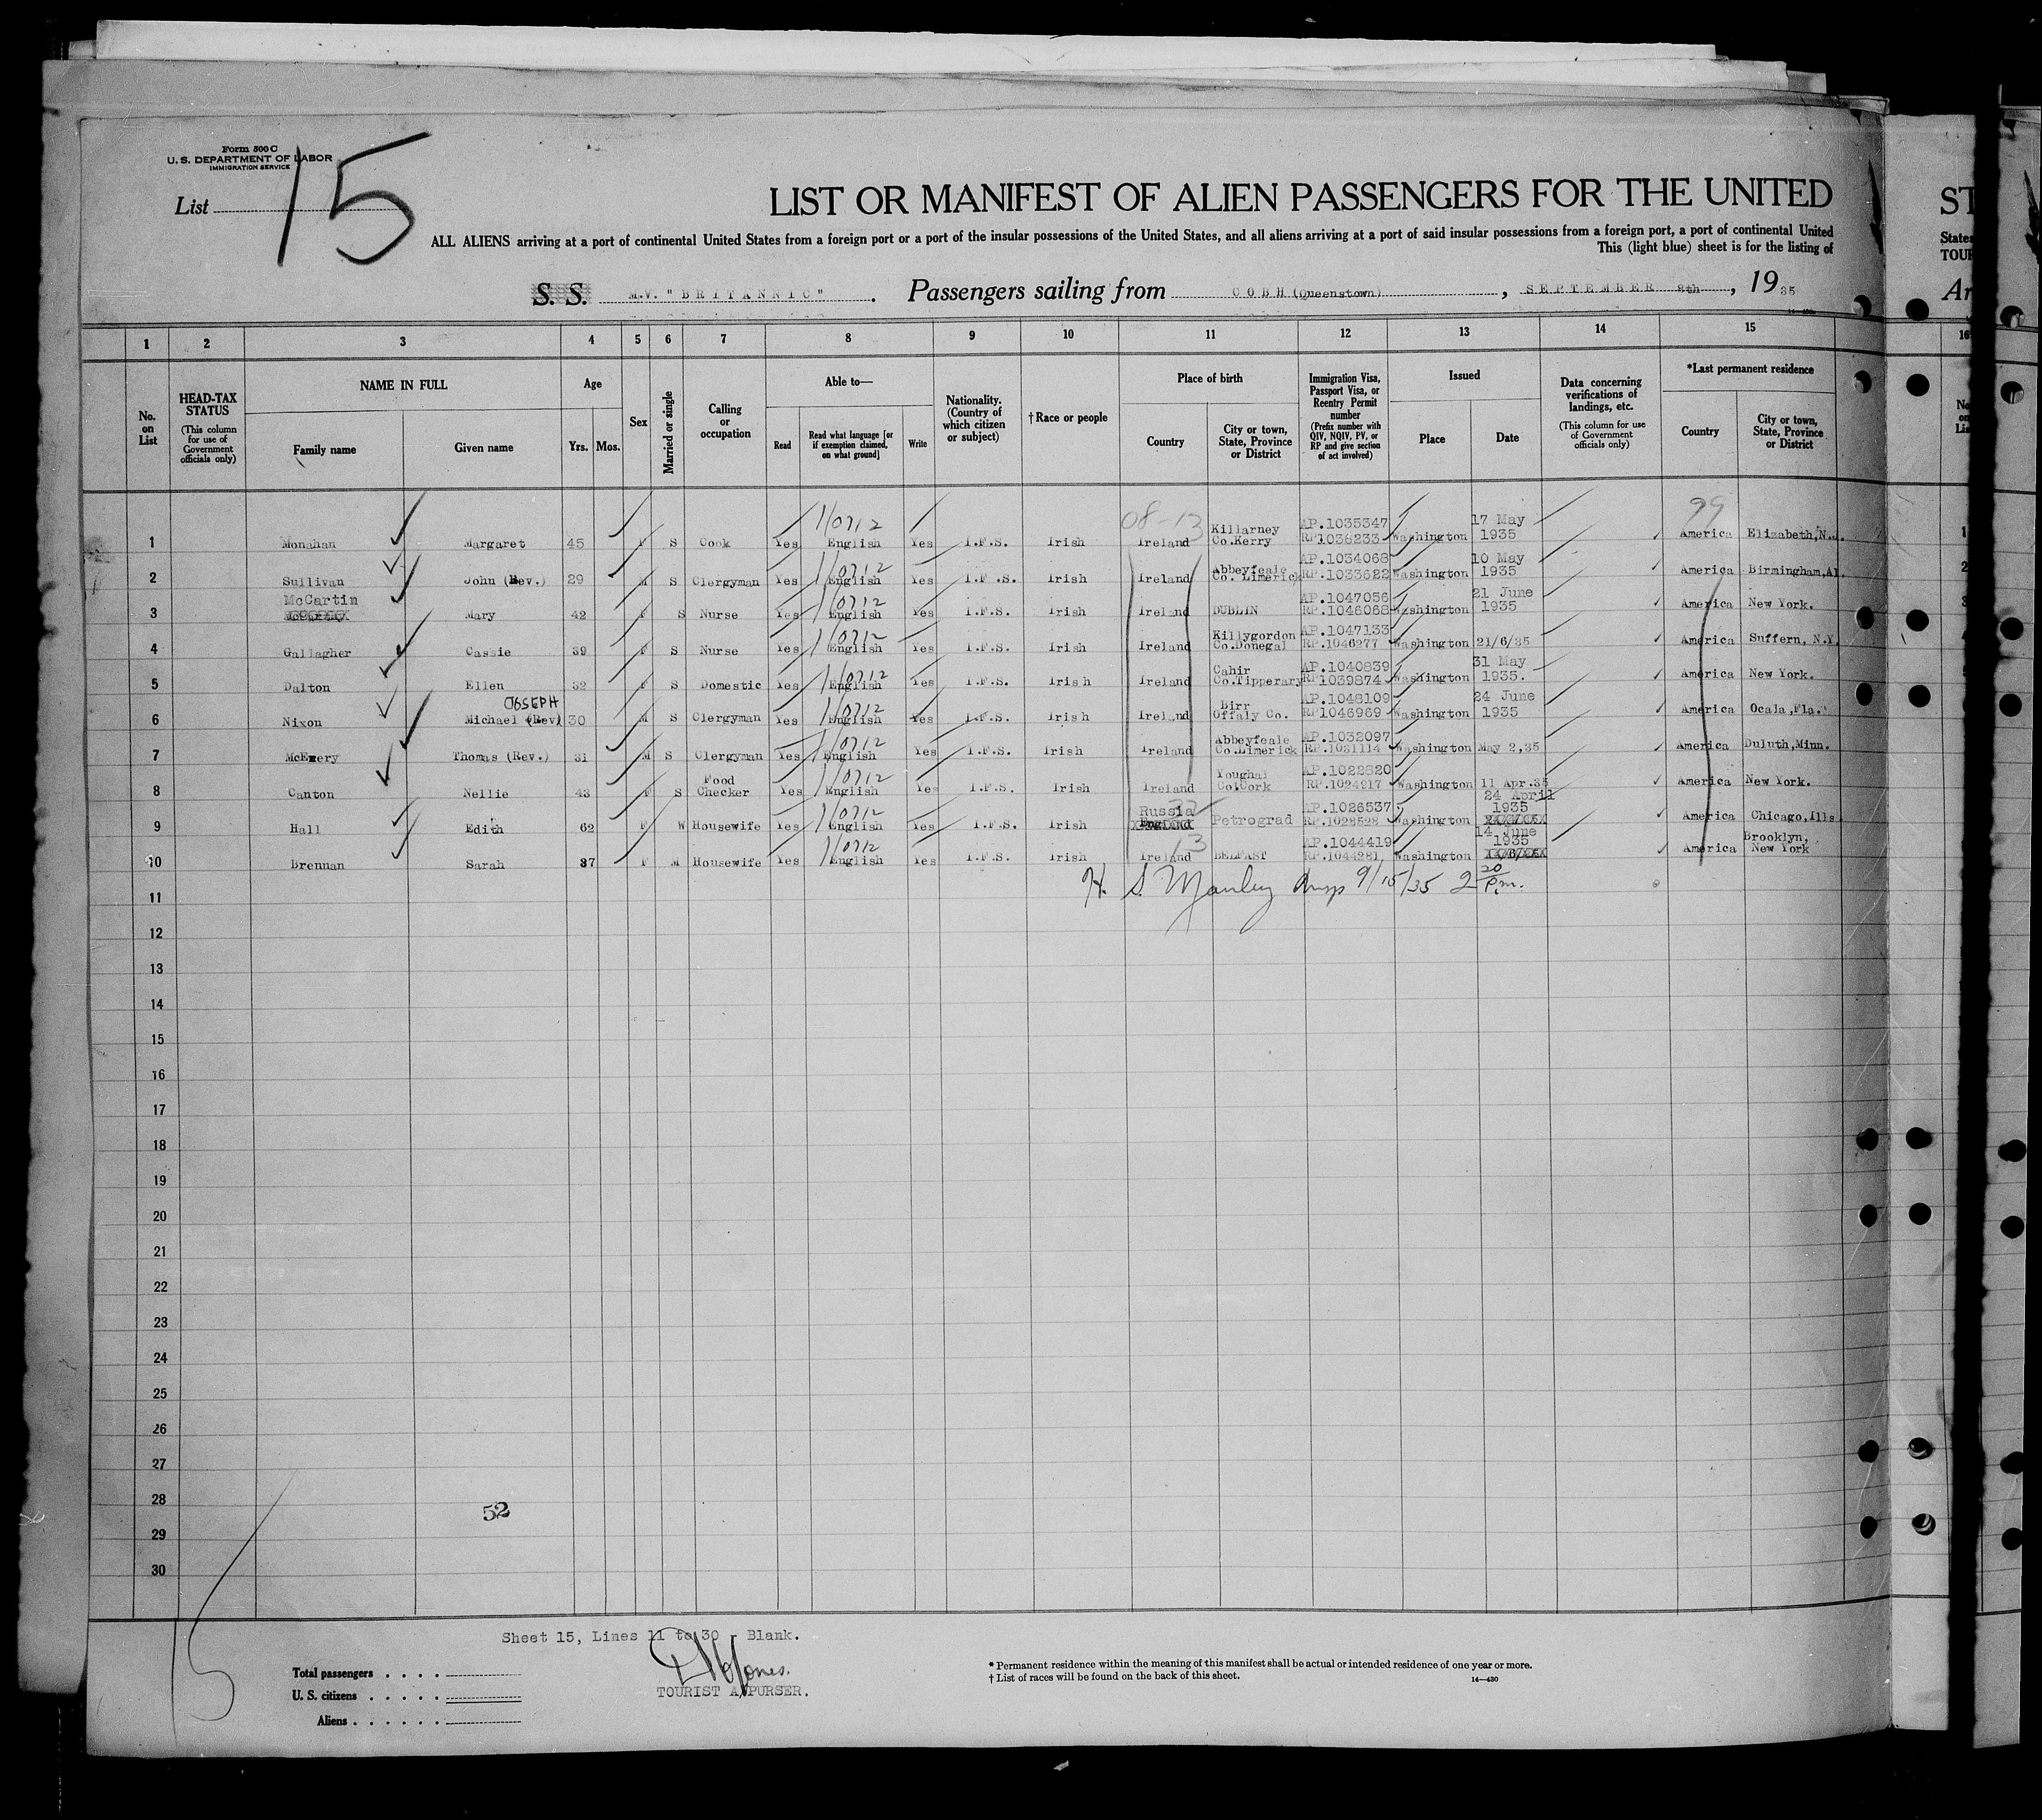 Form 500 C
U. S. DEPARTMENT OF LABOR
IMMIGRATION SERVICE
List 15
LIST OR MANIFEST OF ALIEN PASSENGERS FOR THE UNITED
ST
ALL ALIENS arriving at a port of continental United States from a foreign port or a port of the insular possessions of the United States, and all aliens arriving at a port of said insular possessions from a foreign port, a port of continental United
States
This (light blue) sheet is for the listing of
TOUR
S. S. M.V. "BRITANNIC". Passengers sailing from COBH (Queenstown), SEPTEMBER 8th, 1935
Ar
1 2 3 4 5 6 7 8 9 10 11 12 13 14 15 16
No. on List
HEAD-TAX STATUS (This column for use of Government officials only)
NAME IN FULL Family name Given name
Age Yrs. Mos.
Sex
Married or single
Calling or occupation
Able to— Read Read what language [or if exemption claimed, on what ground] Write
Nationality. (Country of which citizen or subject)
†Race or people
Place of birth Country City or town, State, Province or District
Immigration Visa, Passport Visa, or Reentry Permit number (Prefix number with QIV, NQIV, PV, or RP and give section of act involved)
Issued Place Date
Data concerning verifications of landings, etc. (This column for use of Government officials only)
*Last permanent residence Country City or town, State, Province or District
08-13 99
1 Monahan Margaret 45 F S Cook Yes English Yes I.F.S. Irish Ireland Killarney Co.Kerry AP.1035347 RP1036233 Washington 17 May 1935 America Elizabeth,N.J.
2 Sullivan John (Rev.) 29 M S Clergyman Yes English Yes I.F.S. Irish Ireland Abbeyfeale Co. Limerick AP.1034068 RP.1033622 Washington 10 May 1935 America Birmingham,Al.
3 McCartin Mary 42 F S Nurse Yes English Yes I.F.S. Irish Ireland DUBLIN AP.1047056 RP.1046068 Washington 21 June 1935 America New York.
4 Gallagher Cassie 39 F S Nurse Yes English Yes I.F.S. Irish Ireland Killygordon Co.Donegal AP.1047133 RP.1046277 Washington 21/6/35 America Suffern, N.Y.
5 Dalton Ellen 32 F S Domestic Yes English Yes I.F.S. Irish Ireland Cahir Co.Tipperary AP.1040839 RP1039874 Washington 31 May 1935. America New York.
6 Nixon Michael JOSEPH (Rev) 30 M S Clergyman Yes English Yes I.F.S. Irish Ireland Birr Offaly Co. AP.1048109 RP1046969 Washington 24 June 1935 America Ocala,Fla.
7 McEnery Thomas (Rev.) 31 M S Clergyman Yes English Yes I.F.S. Irish Ireland Abbeyfeale Co.Limerick AP.1032097 RP.1031114 Washington May 2,35 America Duluth,Minn.
8 Canton Nellie 43 F S Food Checker Yes English Yes I.F.S. Irish Ireland Youghal Co.Cork AP.1022820 RP.1024917 Washington 11 Apr.35 America New York.
9 Hall Edith 62 F W Housewife Yes English Yes I.F.S. Irish Russia England Petrograd AP.1026537 RP.1028528 Washington 24 April 1935 America Chicago,Ills
10 Brennan Sarah 37 F M Housewife Yes English Yes I.F.S. Irish Ireland BELFAST AP.1044419 RP.1044281 Washington 14 June 1935 America Brooklyn, New York
11 H. S Manley Insp 9/15/35 2 20 P.m.
12
13
14
15
16
17
18
19
20
21
22
23
24
25
26
27
28
52
29
30
Sheet 15, Lines 11 to 30 - Blank.
Total passengers
U. S. citizens
Aliens
Jones.
TOURIST A/PURSER.
* Permanent residence within the meaning of this manifest shall be actual or intended residence of one year or more.
† List of races will be found on the back of this sheet.
14—430